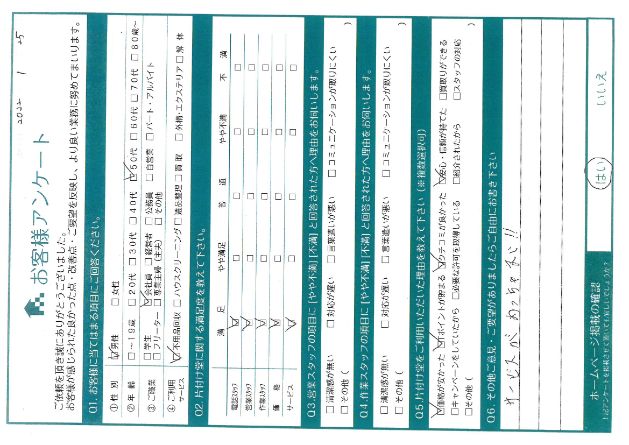 2022 1 25
お客様アンケート
ご依頼を頂き誠にありがとうございました。
お客様が感じられた良かった点・改善点・ご要望を反映し、より良い業務に努めてまいります。
Q1. お客様に当てはまる項目にご回答ください。
①性 別 ☑男性 □女性
②年 齢 □~19歳 □20代 □30代 □40代 □50代 □60代 □70代 □80歳~
③ご職業 □学生 ☑会社員 □経営者 □公務員 □自営業 □パート・アルバイト
□フリーター □専業主婦（主夫） □その他
④ご利用サービス ☑不用品回収 □ハウスクリーニング □遺品整理 □買取 □外構・エクステリア □解体
Q2. 片付け堂に関する満足度を教えて下さい。
満足 やや満足 普通 やや不満 不満
電話スタッフ ☑ □ □ □ □
営業スタッフ ☑ □ □ □ □
作業スタッフ ☑ □ □ □ □
価格 ☑ □ □ □ □
サービス ☑ □ □ □ □
Q3.営業スタッフの項目に［やや不満］［不満］と回答された方へ理由をお伺いします。
□清潔感が無い □対応が遅い □言葉遣いが悪い □コミュニケーションが取りにくい
□その他（ ）
Q4.作業スタッフの項目に［やや不満］［不満］と回答された方へ理由をお伺いします。
□清潔感が無い □対応が遅い □言葉遣いが悪い □コミュニケーションが取りにくい
□その他（ ）
Q5.片付け堂をご利用いただいた理由を教えて下さい（※複数選択可）
☑価格が安かった ☑Tポイントが貯まる ☑クチコミが良かった ☑安心・信頼が持てた □買取りができる
□キャンペーンをしていたから □必要な許可を取得している □紹介されたから □スタッフの対応
□その他（ ）
Q6. その他ご意見・ご要望がありましたらご自由にお書き下さい
サービスがめっちゃ良い!!
ホームページ掲載の確認
はい いいえ